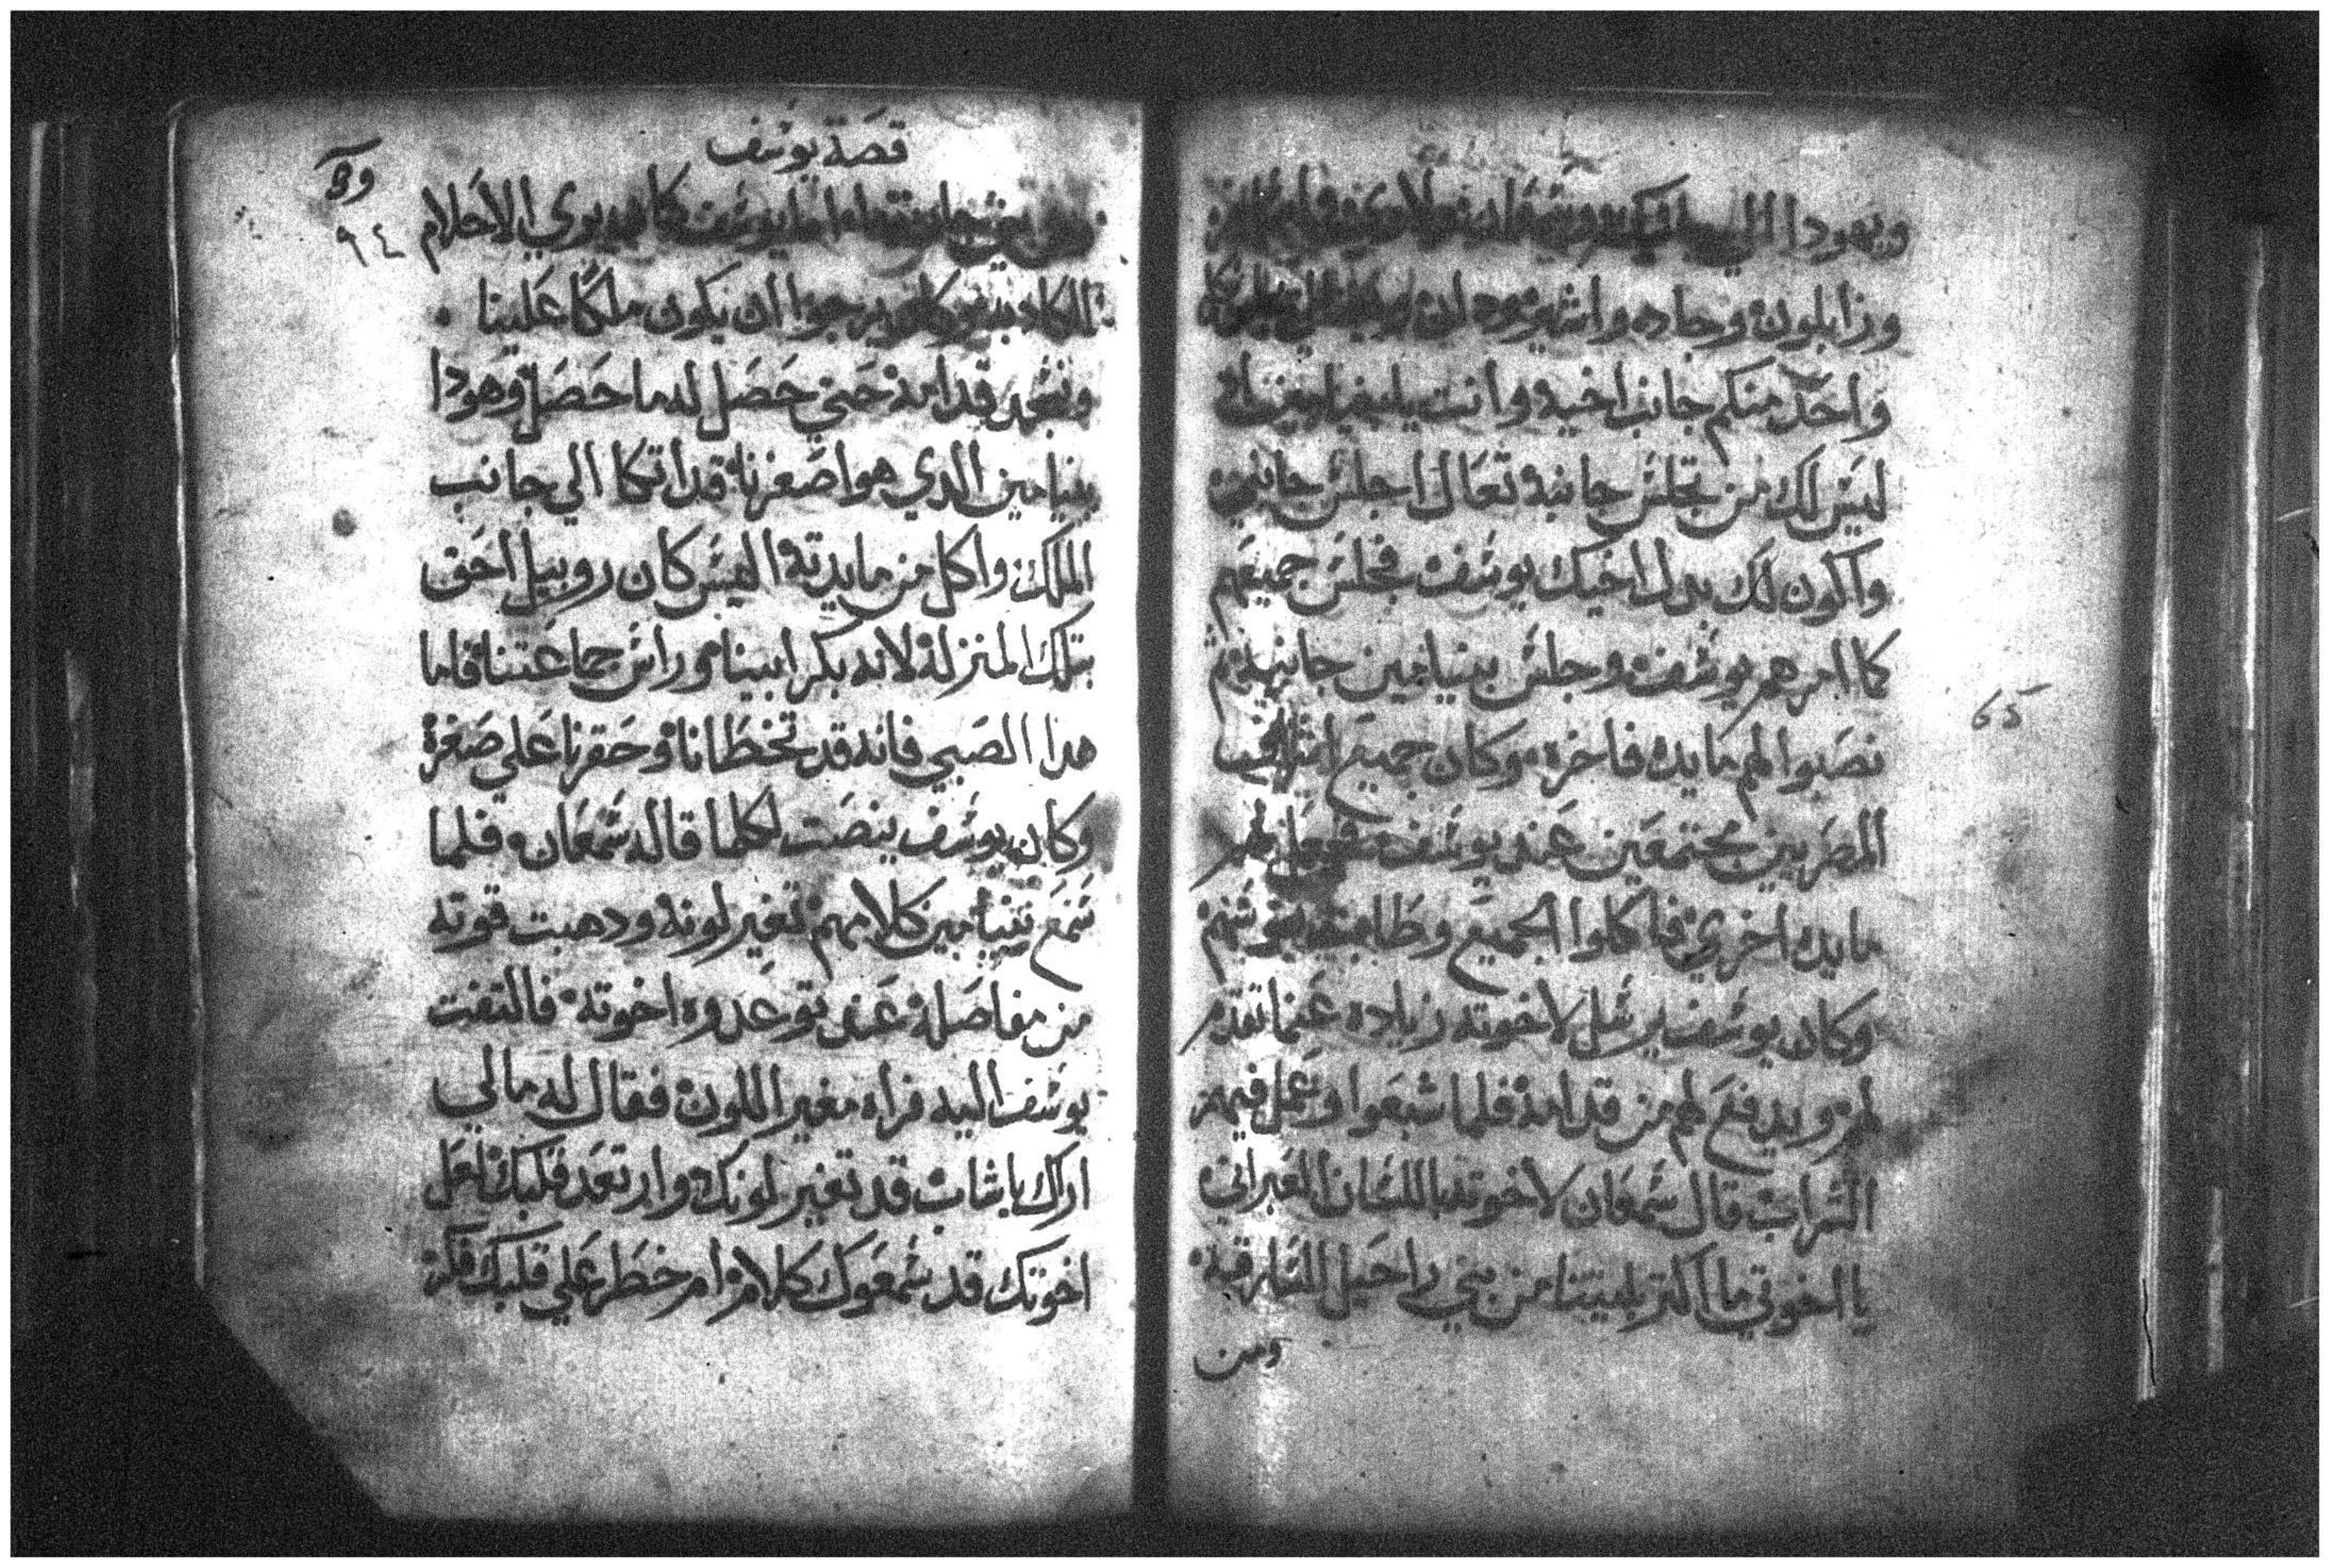 ويهودا الي
وزابلون وجاده واشير ودان
واحد منكم جانب اخيه وانت يا بنيامين
ليس لك من تجلس جانبه تعال اجلس جانبي
واكون لك بدل اخيك يوسف فجلس جميعهم
كما امرهم يوسف وجلس بنيامين جانبه ثم
نصبوا لهم مايده فاخره وكان جميع
المصريين مجتمعين عند يوسف لهم
مايده اخري فاكلوا الجميع وطابت
وكان يوسف يرسل لاخوته زياده عنما تقدم
لهم ويدفع لهم من قدامه فلما شبعوا وعمل فيهم
الشراب قال شمعان لاخوته باللسان العبراني
يا اخوتي ما اكتر بليتنا من بني راحيل السارقه
ومن
65
قصة يوسف
٩٤
يوسف كان يري الاحلام
يرجوا ان يكون ملكا علينا
ونسجد قدامه حتي حصل له ما حصل وهودا
بنيامين الدي هو اصغرنا قد اتكا الي جانب
الملك واكل من مايدته اليس كان روبيل احق
بتلك المنزله لانه بكر ابينا وراس جماعتنا فاما
هدا الصبي فانه قد تخطانا وحقرنا علي صغره
وكان يوسف ينصت لكلما قاله شمعان فلما
سمع بنيامين كلامهم تغير لونه ودهبت قوته
من مفاصله عندى توعدوه اخوته فالتفت
يوسف اليه فراه مغير اللون فقال له مالي
اراك يا شاب قد تغير لونك وارتعد قلبك لعل
اخوتك قد سمعوك كلام ام خطر علي قلبك فكر